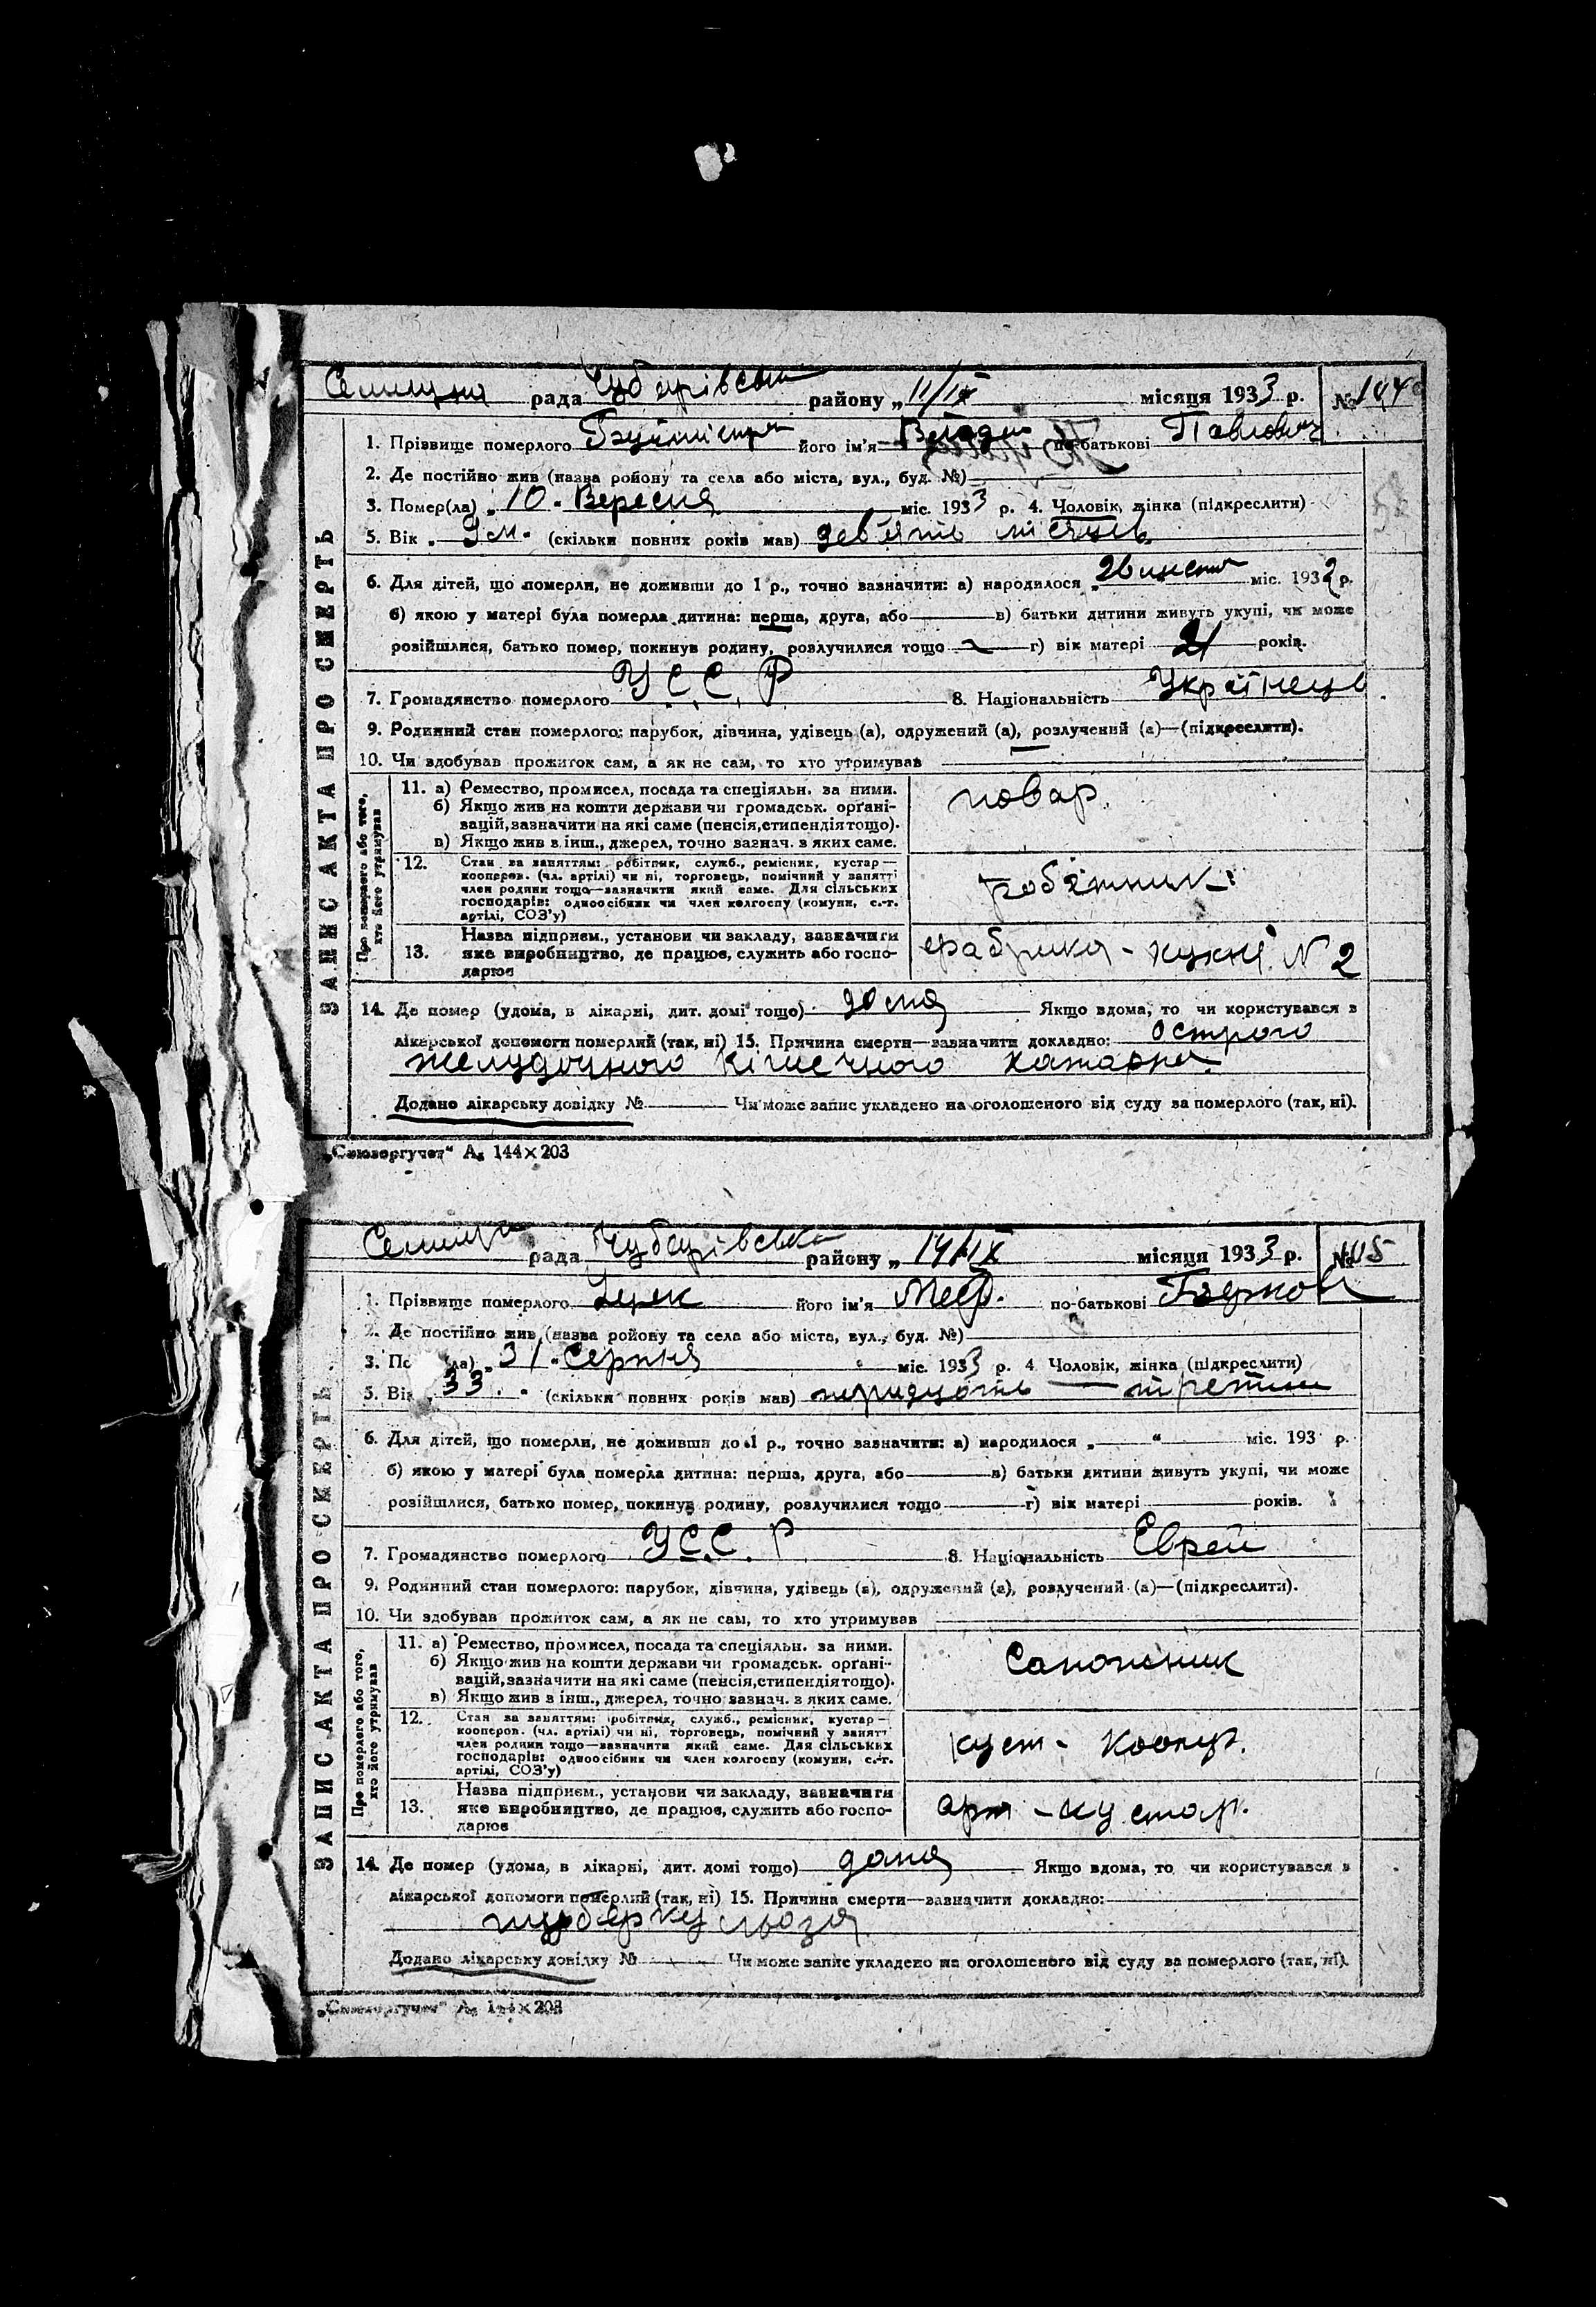 рада Чубарівська району „ 11/IX місяця 1933 р. №
1. Прізвище померлого його ім'я по-батькові Павлович
2. Де постійно жив (назва району та села або міста, вул., буд. №)
3. Помер(ла) „ 10 - Вересня міс. 1933 р. 4. Чоловік, жінка (підкреслити)
5. Вік „ 9 м. (скільки повних років мав) дев'ять місяців
6. Для дітей, що померли, не доживши до 1 р., точно зазначити: а) народилося міс. 1932 р.
б) якою у матері була померла дитина: перша, друга, або в) батьки дитини живуть укупі, чи може
розійшлися, батько помер, покинув родину, розлучилися тощо г) вік матері 21 років.
7. Громадянство померлого У.С.С.Р 8. Національність Українець
9. Родинний стан померлого: парубок, дівчина, удівець (а), одружений (а), розлучений (а)—(підкреслити).
10. Чи здобував прожиток сам, а як не сам, то хто утримував
ЗАПИС АКТА ПРО СМЕРТЬ
Про померлого або того,
хто його утримував
11. а) Ремество, промисел, посада та спеціяльн. за ними.
б) Якщо жив на кошти держави чи громадськ. органі-
зацій, зазначити на які саме (пенсія, стипендія тощо).
в) Якщо жив з інш., джерел, точно зазнач. з яких саме.
повар.
12. Стан за заняттям: робітник, служб., ремісник, кустар—
кооперов. (чл. артілі) чи ні, торговець, помічний у занятті
член родини тощо—зазначити який саме. Для сільських
господарів: одноосібник чи член колгоспу (комуни, с.-г.
артілі, СОЗ'у)
робітник
13. Назва підприєм., установи чи закладу, зазначити
яке виробництво, де працює, служить або госпо-
дарює
фабрика - кухня N 2
14. Де помер (удома, в лікарні, дит. домі тощо) дома Якщо вдома, то чи користувався з
лікарської допомоги померлий (так, ні) 15. Причина смерти—зазначити докладно: Острого
желудочного кишечного катарра
Додано лікарську довідку № Чи може запис укладено на оголошеного від суду за померлого (так, ні).
„Союзоргучет“ А₅ 144×203
рада Чубарівська району „ 14/IX місяця 1933 р. № 105
1. Прізвище померлого його ім'я по-батькові
2. Де постійно жив (назва району та села або міста, вул., буд. №)
3. По ла) „ 31 - Серпня міс. 1933 р. 4 Чоловік, жінка (підкреслити)
5. Вік „ 33 . (скільки повних років мав) тридцать — третій
6. Для дітей, що померли, не доживши до 1 р., точно зазначити: а) народилося „ “ міс. 193 р.
б) якою у матері була померла дитина: перша, друга, або в) батьки дитини живуть укупі, чи може
розійшлися, батько помер, покинув родину, розлучилися тощо г) вік матері років.
7. Громадянство померлого У.С.С. Р 8. Національність Еврей
9. Родинний стан померлого: парубок, дівчина, удівець (а), одружений (а), розлучений (а)—(підкреслити).
10. Чи здобував прожиток сам, а як не сам, то хто утримував
ЗАПИС АКТА ПРО СМЕРТЬ
Про померлого або того,
хто його утримував
11. а) Ремество, промисел, посада та спеціяльн. за ними.
б) Якщо жив на кошти держави чи громадськ. органі-
зацій, зазначити на які саме (пенсія, стипендія тощо).
в) Якщо жив з інш., джерел, точно зазнач. з яких саме.
Сапожник
12. Стан за заняттям: робітник, служб., ремісник, кустар—
кооперов. (чл. артілі) чи ні, торговець, помічний у занятті
член родини тощо—зазначити який саме. Для сільських
господарів: одноосібник чи член колгоспу (комуни, с.-г.
артілі, СОЗ'у)
куст - коопер.
13. Назва підприєм., установи чи закладу, зазначити
яке виробництво, де працює, служить або госпо-
дарює
арт - кустар.
14. Де помер (удома, в лікарні, дит. домі тощо) дома Якщо вдома, то чи користувався з
лікарської допомоги померлий (так, ні) 15. Причина смерти—зазначити докладно:
туберкульоза
Додано лікарську довідку № Чи може запис укладено на оголошеного від суду за померлого (так, ні).
„Союзоргучет“ А₅ 144×203